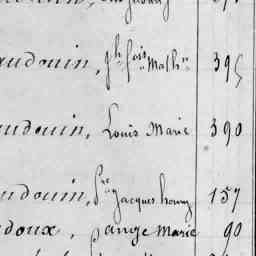 audouin, Jh fois Mathn 395
audouin, Louis Marie 390
audouin, Pre jacques henry 157
doux, ange Marie 90